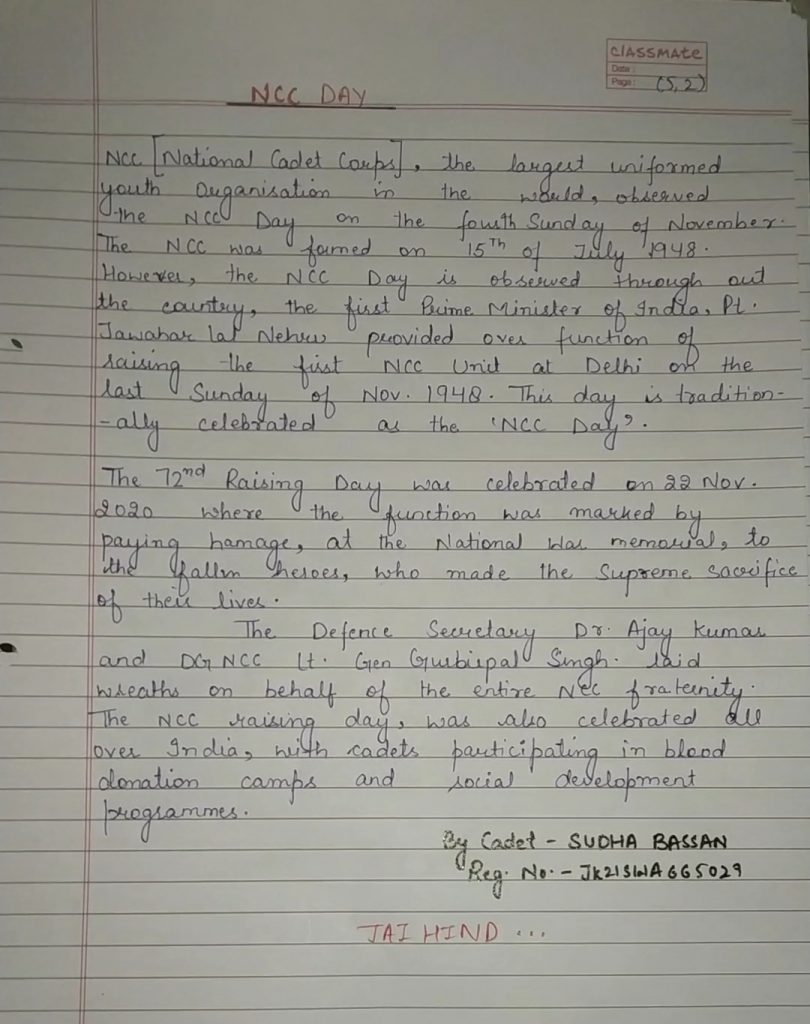 CLASSMATE
Date :
Page : (5,2)
NCC DAY
NCC [National Cadet Corps], the largest uniformed
youth Organisation in the would, observed
the NCC Day on the fourth Sunday of November.
The NCC was formed on 15Th of July 1948.
However, the NCC Day is observed through out
the country, the first Prime Minister of India, Pt.
Jawahar lal Nehru provided over function of
raising the first NCC Unit at Delhi on the
last Sunday of Nov. 1948. This day is tradition-
-ally celebrated as the 'NCC Day'.
The 72nd Raising Day was celebrated on 22 Nov.
2020 where the function was marked by
paying hamage, at the National War memorial, to
the fallen heroes, who made the Supreme sacrifice
of their lives.
The Defence Secretary Dr. Ajay Kumar
and DG NCC Lt. Gen Gurbirpal Singh. laid
wreaths on behalf of the entire NCC fraternity.
The NCC raising day, was also celebrated all
over India, with cadets participating in blood
donation camps and social development
programmes.
By Cadet - SUDHA BASSAN
Reg. No. - JK21SWA665029
JAI HIND ...